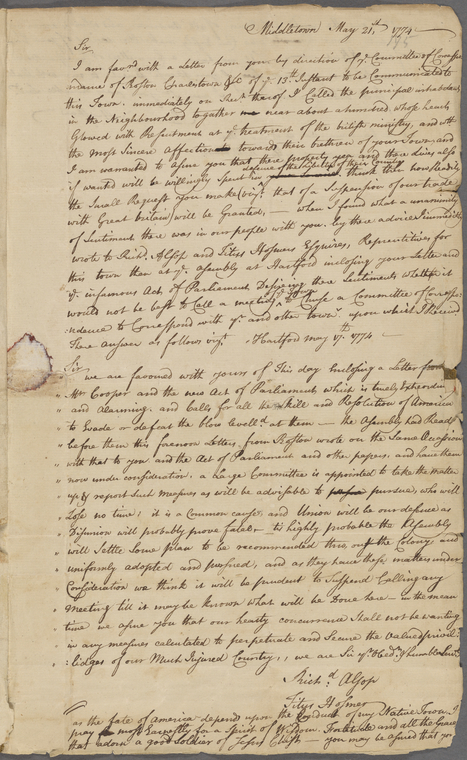 Middletown May 21st 1774
Sir
I am favrd with a Letter from you by direction of ye Committee of Corresp
names of Boston Charestown &c of ye 13th Instant to be Communicated to
this Town. immediately on Rect thereof I Called the principal inhabitants
in the Neighbourhood together near about a hundred whose hearts
Glowed with Resentment at ye treatment of the british ministry, and with
the most Sincere affection towards their brethren of your Town and
I am warranted to assure you that there property yea and there lives also
if wanted will be willingly Spent in defence of their Country think then how readily
the Small Request you make (vizt that of a Suspension of our trade
with Great britain) will be Granted, — when I found what a unanimity
of Sentiment there was in our people with you, by there advice I immediately
wrote to Richd Alsop and Titus Hosmer Esquires, Representitives for
this town then at ye Assembly at Hartford inclosing your Letter and
ye infamous Act of Parliament Desiring there Sentiments whether it
would not be best to Call a meeting of ye Town to Chuse a Committee of corresp
:ondence to Correspond with yrs and other towns upon which I Received
There Answer as follows vizt Hartford may 17th 1774
Sir
we are favoured with yours of This day Inclosing a Letter from
" Mr Cooper and the new Act of Parliament which is truely Extraordin
" and Alarming. and Calls for all the Skill and Resolution of America
" to Evade or defeat the blow levelld at them — the Assembly had Read
" before them this forenoon Letters from Boston wrote on the Same Occasion
" with that to you and the Act of Parliament and other papers, and have them
" now under consideration. a Large Committee is appointed to take the matter
" up & report Such Measures as will be adviseable to pursue, who will
" Lose no time; it is a Common cause and Union will be our defense as
" Disunion will probably prove fatal — tis highly probable the Assembly
" will Settle Some plan to be recommended thro out the Colony and
" uniformly adopted and pursued, and as they have these matters under
" Consideration we think it will be prudent to Suspend Calling any
" Meeting till it may be known What will be Done here — in the mean
time we assure you that our hearty concurrence Shall not be wanting
" in any measures calculated to perpetuate and Secure the Valued privi
" :lidges of our Much Injured Country, we are Sir yr Obedt humble Servts
Richd Alsop
Titus Hosmer
as the fate of America depend upon the Conduct of my Native Town I
pray most Earnestly for a Spirit of Wisdom, Fortitude and all the Graces
that adorn a good Soldier of Jesus Christ — you may be assured that you